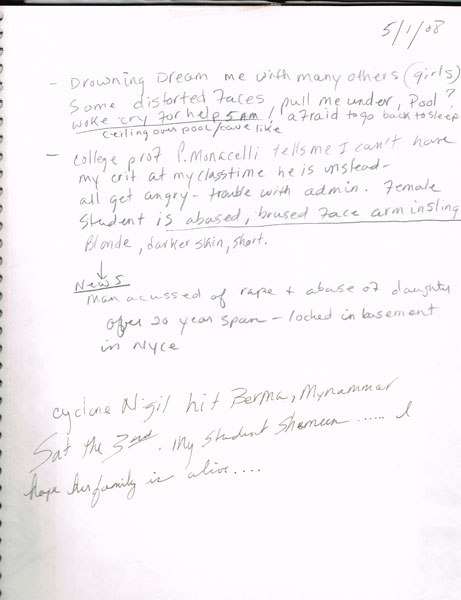 5/1/08
- Drowning Dream me with many others (girls)
Some distorted faces, pull me under, Pool?
woke cry for help 5 AM, afraid to go back to sleep
ceiling over pool/cave like
- College prof P. Monacelli tells me I can't have
my crit at my classtime he is instead-
all get angry - trouble with admin. Female
Student is abased, brused face arm insling
Blonde, darker skin, short.
↓
News
man acussed of rape + abuse of daughter
over 20 year span - locked in basement
in
cyclone Nigil hit Berma, Mynammar
Sat the 3rd. My student Shameen ...... I
hope her family is alive....